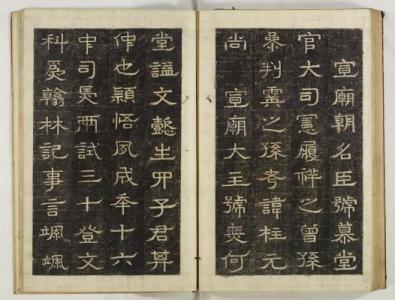 宣廟朝名臣號慕堂
官大司憲履祥之曾孫
參判霙之孫考諱柱元
尚 宣廟大王號無何
堂謚文懿生四子君其
仲也穎悟夙成年十六
中司馬兩試三十登文
科爲翰林記事言颯颯